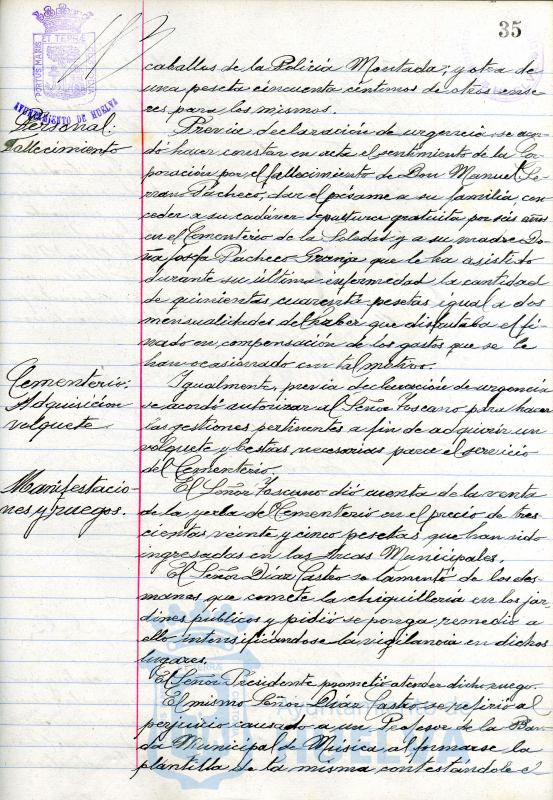 35
PORTUS MARIS
ET TERRÆ
AYUNTAMIENTO DE HUELVA
caballos de la Policía Montada; y otra de
una peseta cincuenta centimos de otros ense
res para los mismos.
Personal:
Fallecimiento
Previa declaración de urgencia se acor
dó hacer constar en acta el sentimiento de la Cor
poración por el fallecimiento de Don Manuel Se
rrano Pacheco, dar el pésame a su familia, con
ceder a su cadáver sepultura gratuita por seis años
en el Cementerio de la Soledad y a su madre Do
ña Josefa Pacheco Granja que le ha asistido
durante su última enfermedad la cantidad
de quinientas cuarenta pesetas igual a dos
mensualidades del haber que disfrutaba el fi
nado en compensación de los gastos que se le
han ocasionado con tal motivo.
Cementerio:
Adquisición
volquete
Igualmente, previa declaración de urgencia
se acordó autorizar al Señor Toscano para hacer
las gestiones pertinentes a fin de adquirir un
volquete y bestias necesarias para el servicio
del Cementerio.
Manifestacio-
nes y ruegos.
El Señor Toscano dió cuenta de la venta
de la yerba de Cementerio en el precio de tres
cientas veinte y cinco pesetas que han sido
ingresadas en las Arcas Municipales.
El Señor Díaz Castro se lamentó de los des
manes que comete la chiquillería en los jar
dines públicos y pidió se ponga remedio a
ello intensificándose la vigilancia en dichos
lugares.
El Señor Presidente prometió atender dicho ruego.
El mismo Señor Díaz Castro se refirió al
perjuicio causado a un Profesor de la Ban
da Municipal de Música al formarse la
plantilla de la misma, contestándole el
Ayuntamiento de
HUELVA